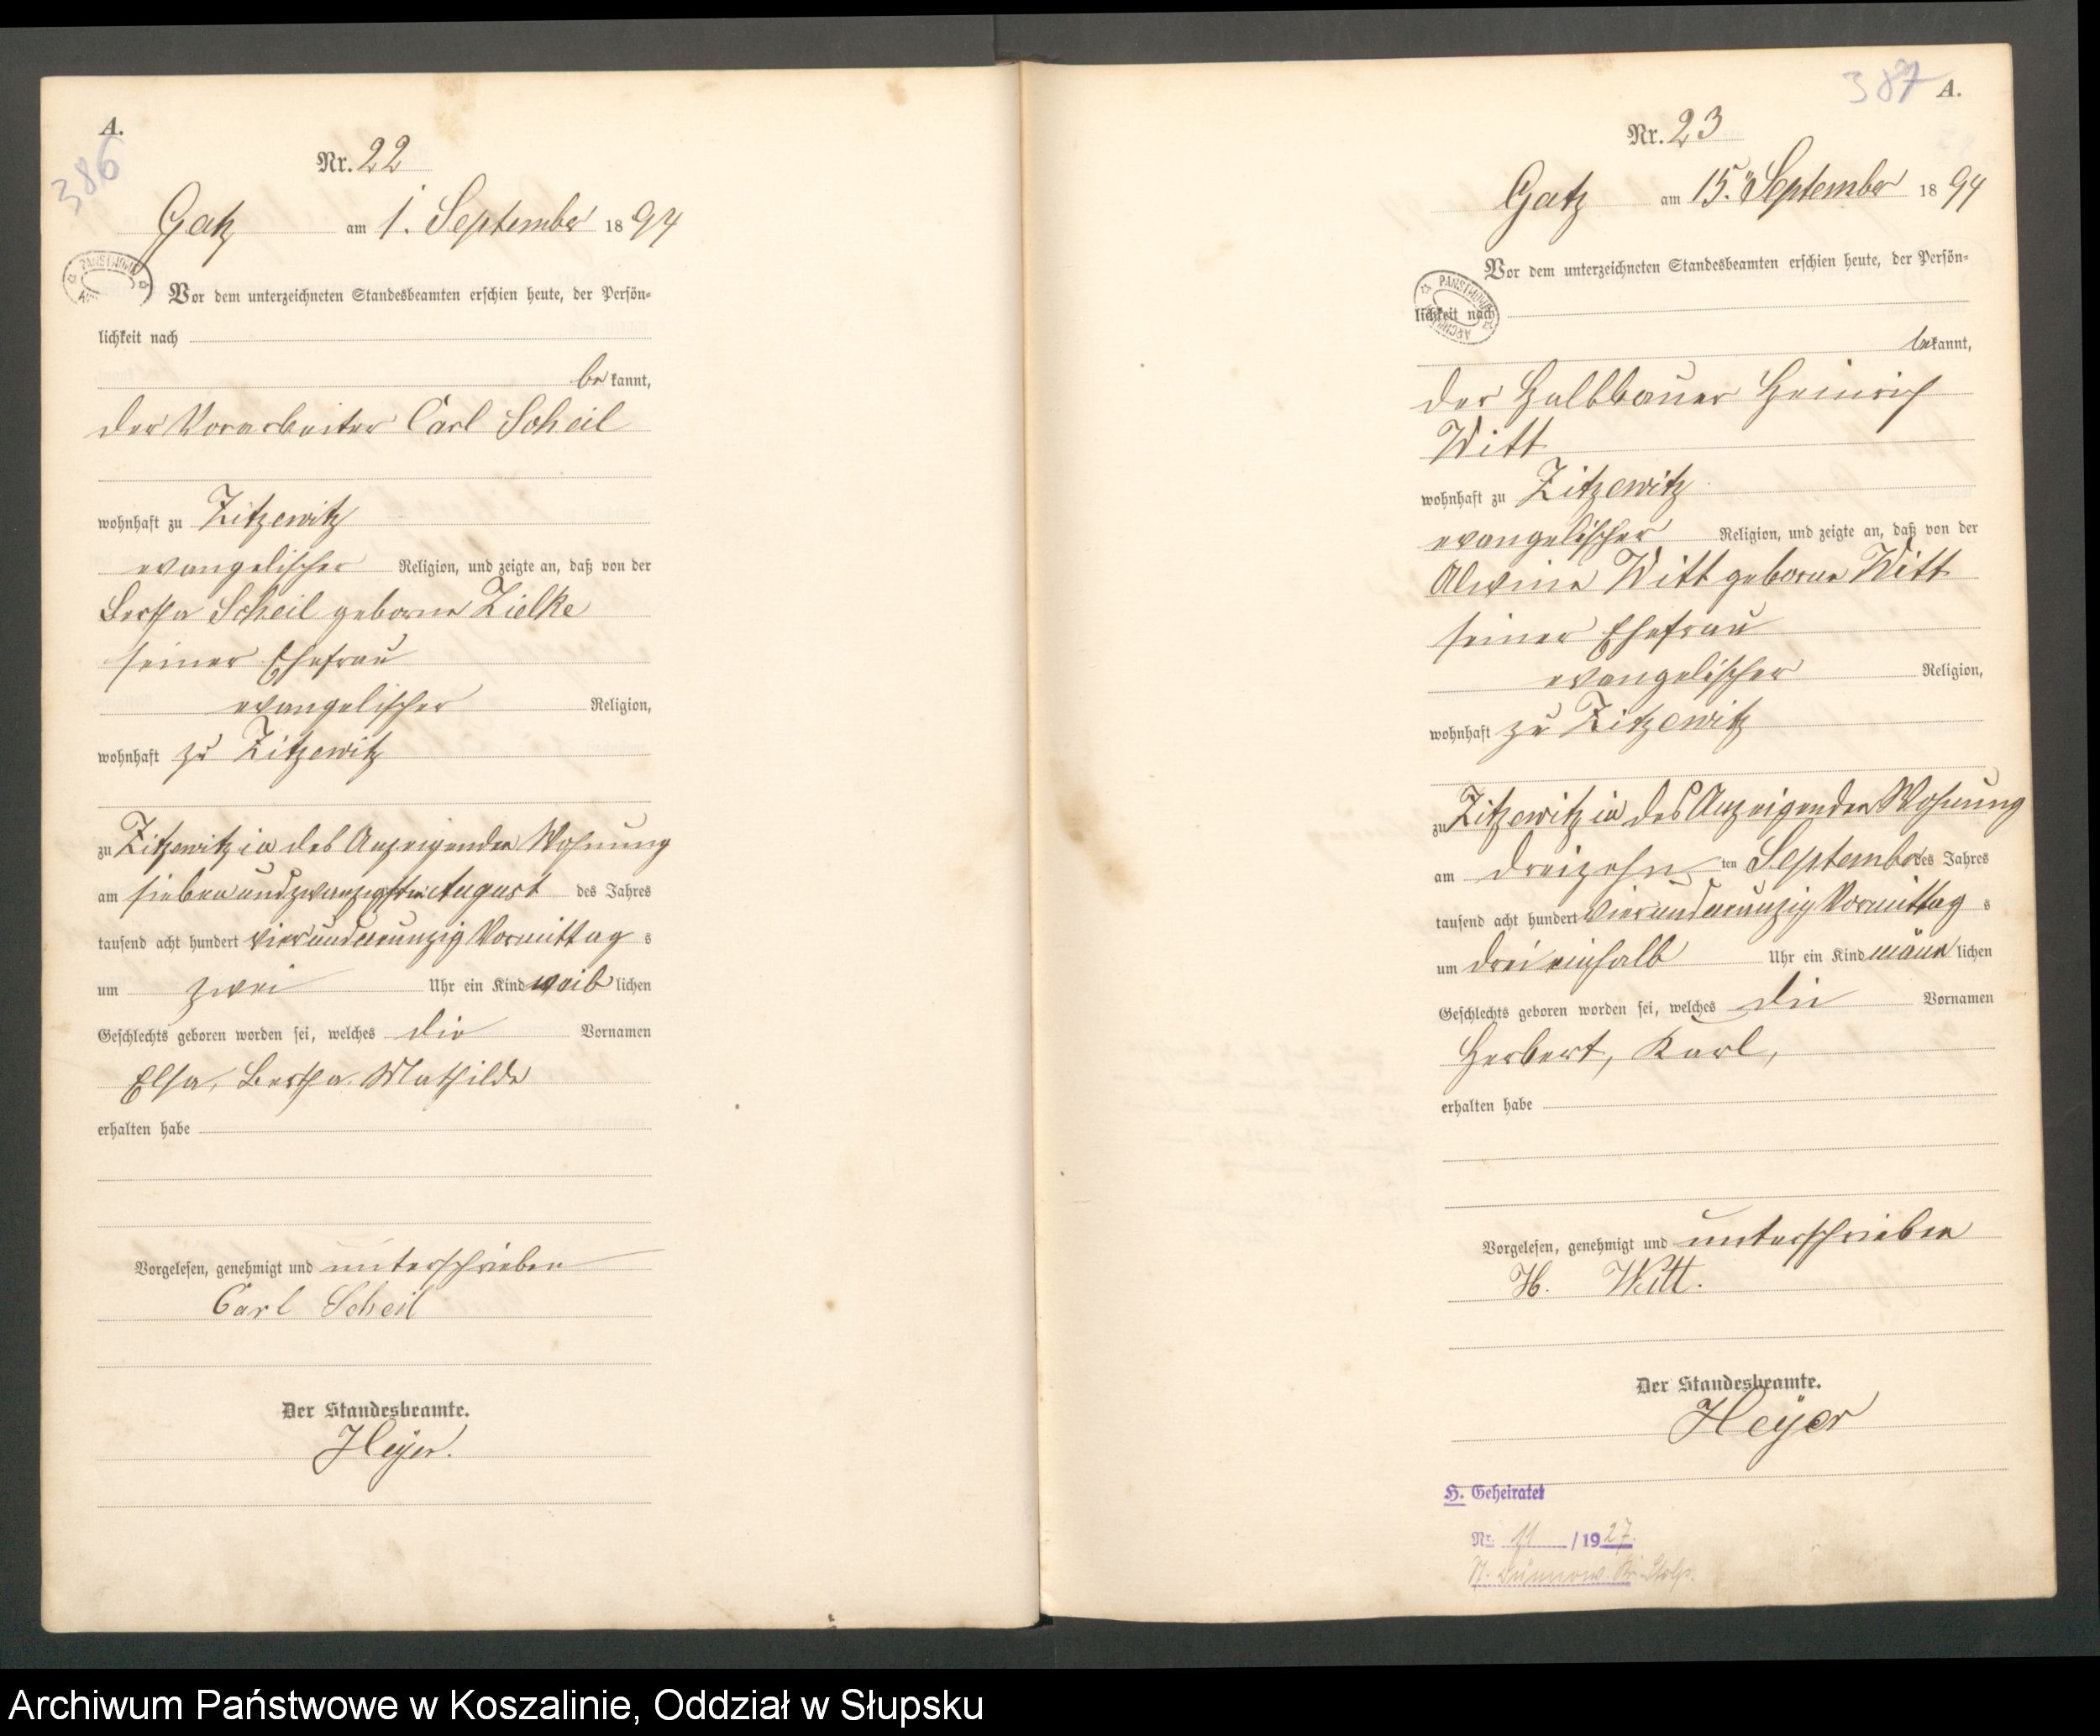 A.
386
Nr. 22
Gatz am 1. September 1894
PAŃSTWOWE
Vor dem unterzeichneten Standesbeamten erschien heute, der Persön=
lichkeit nach
be kannt,
der Vorarbeiter Carl Scheil
wohnhaft zu Zitzewitz
evangelischer Religion, und zeigte an, daß von der
Bertha Scheil geborne Zielke
seiner Ehefrau
evangelischer Religion,
wohnhaft zu Zitzewitz
zu Zitzewitz in des Anzeigenden Wohnung
am siebenundzwanzigsten August des Jahres
tausend acht hundert vierundneunzig Vormittag s
um zwei Uhr ein Kind weib lichen
Geschlechts geboren worden sei, welches die Vornamen
Elsa, Bertha, Mathilde
erhalten habe
Vorgelesen, genehmigt und unterschrieben
Carl Scheil
Der Standesbeamte.
Heyer.
387 A.
Nr. 23
Gatz am 15. September 1894
Vor dem unterzeichneten Standesbeamten erschien heute, der Persön=
lichkeit nach
bekannt,
der Halbbauer Heinrich
Witt
wohnhaft zu Zitzewitz
evangelischer Religion, und zeigte an, daß von der
Alwine Witt geborne Witt
seiner Ehefrau
evangelischer Religion,
wohnhaft zu Zitzewitz
zu Zitzewitz in des Anzeigenden Wohnung
am dreizehn ten September des Jahres
tausend acht hundert vierundneunzig Vormittag s
um drei einhalb Uhr ein Kind männ lichen
Geschlechts geboren worden sei, welches die Vornamen
Herbert, Karl,
erhalten habe
Vorgelesen, genehmigt und unterschrieben
H. Witt.
Der Standesbeamte.
Heyer
H. Geheiratet
Nr. 11 / 1927.
Dünnow Kr. Stolp.
Archiwum Państwowe w Koszalinie, Oddział w Słupsku